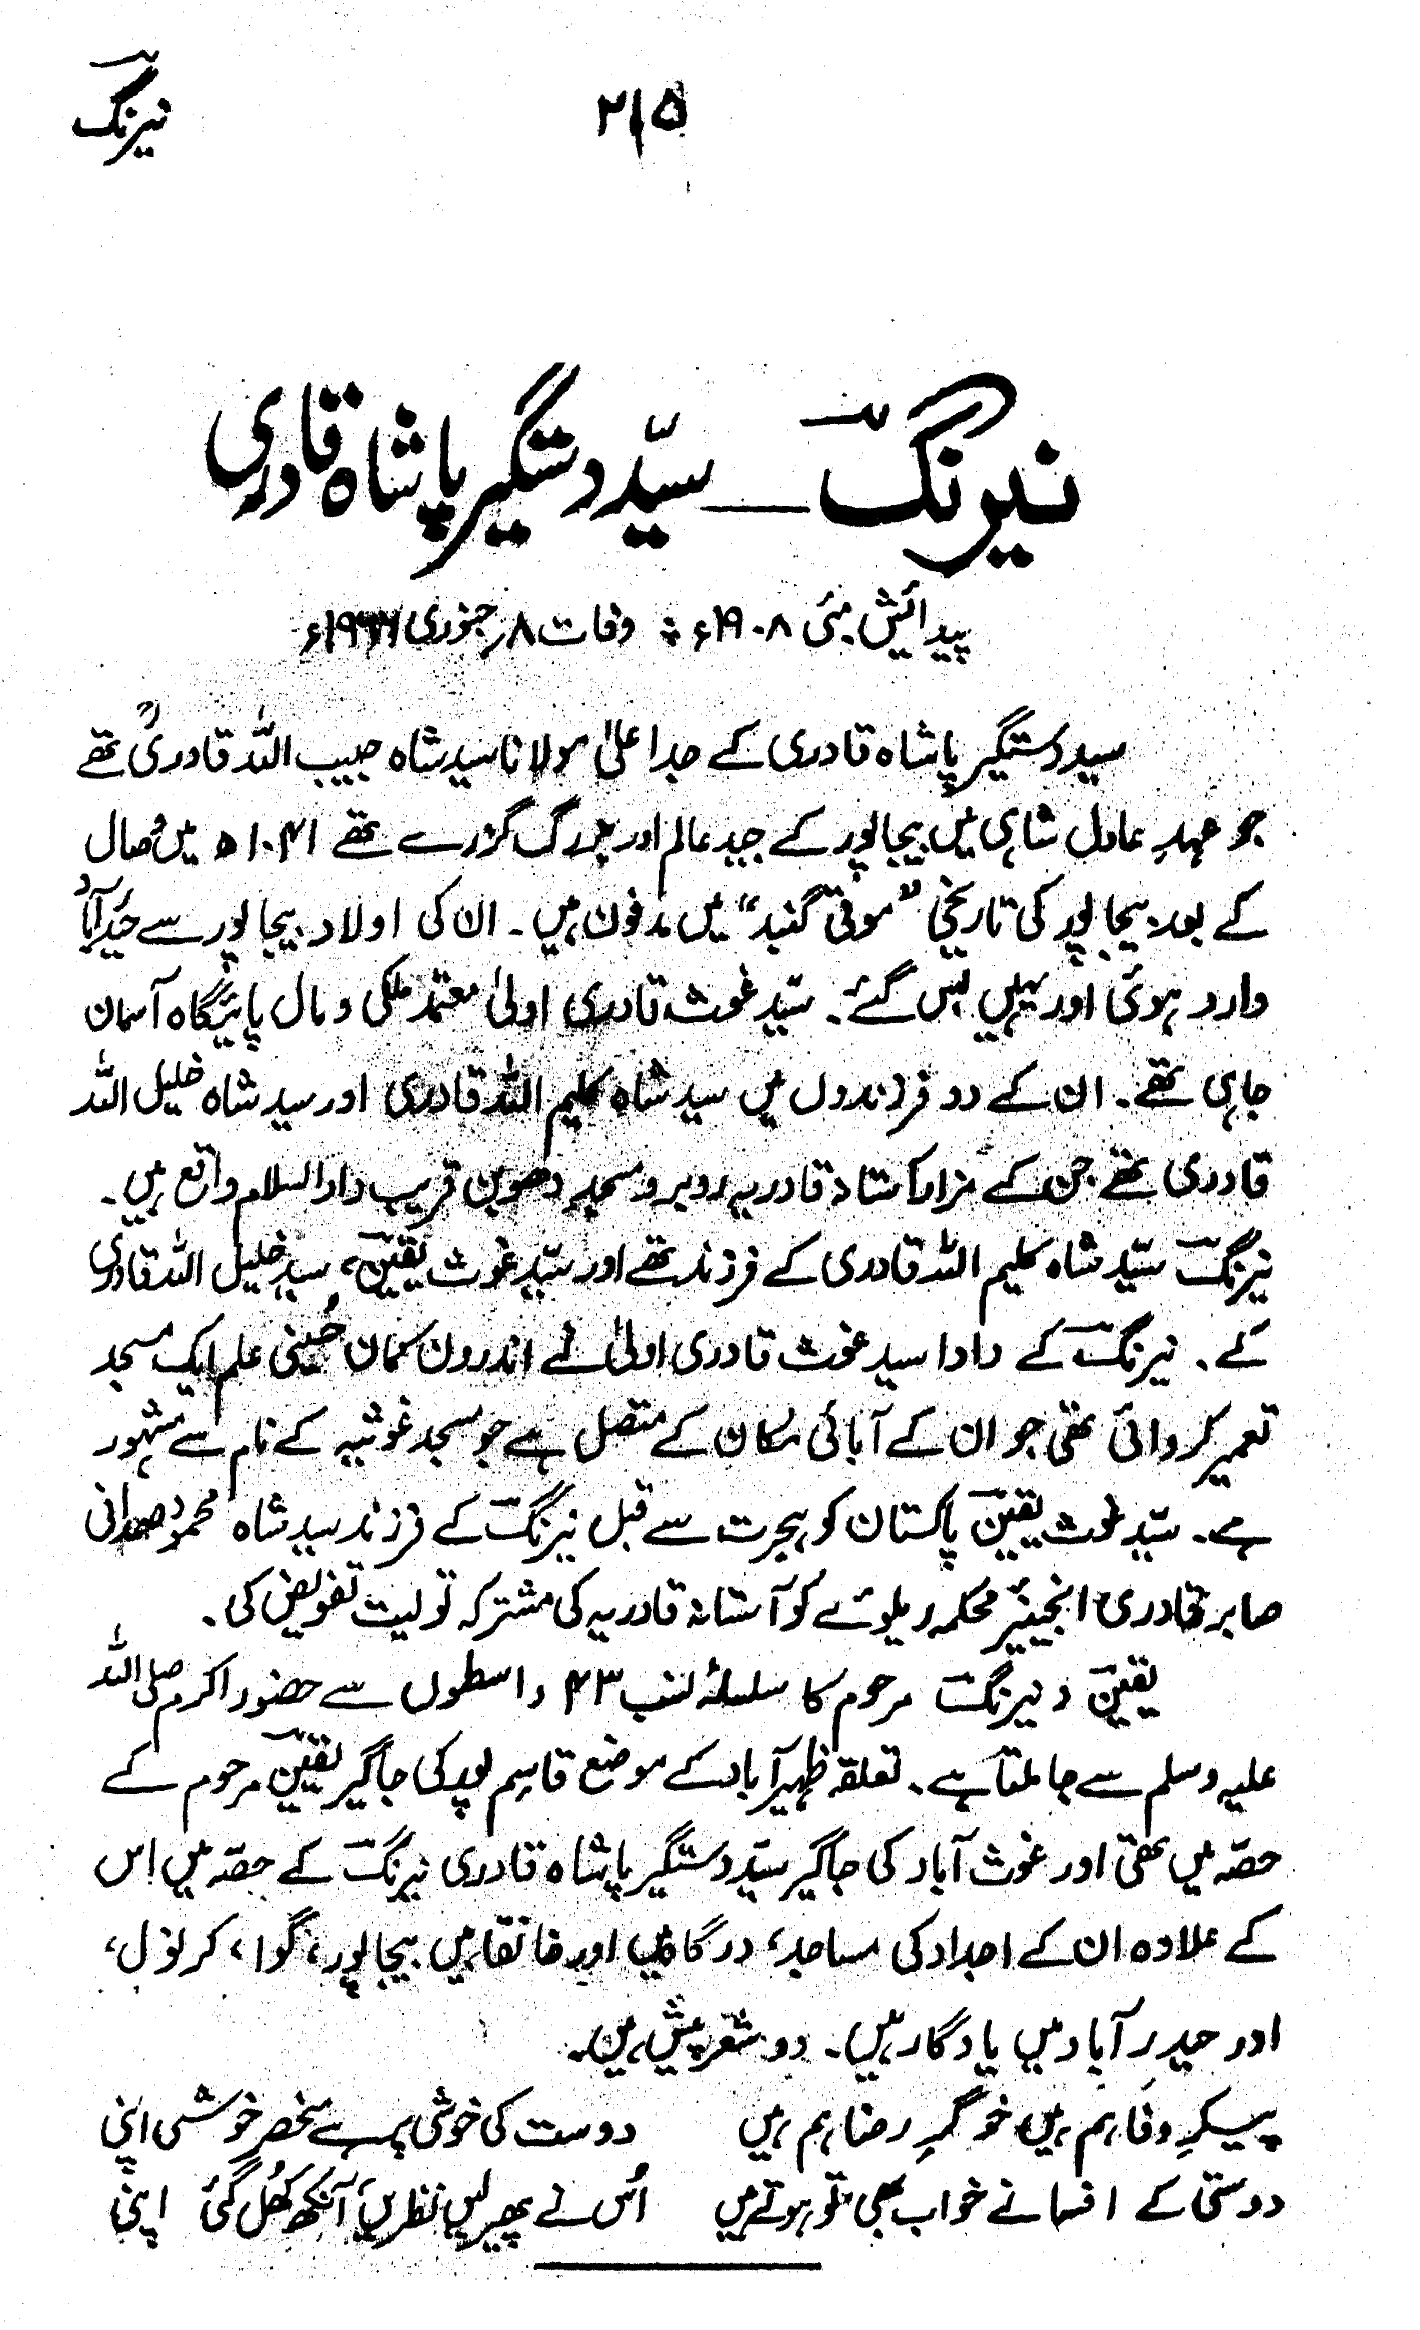 نیرنگؔ
۲۱۵
نیرنگؔ — سیّد دستگیر پاشاہ قادری
پیدائش مئی ۱۹۰۸ء ؞ وفات ۸ر جنوری
سید دستگیر پاشاہ قادری کے جد اعلیٰ مولانا سید شاہ حبیب اللہ قادریؒ تھے
جو عہدِ عادل شاہی میں بیجاپور کے جید عالم اور بزرگ گزرے تھے ۱۰۴۱ھ میں وصال
کے بعد بیجاپور کی تاریخی ”موتی گنبد“ میں مدفون ہیں۔ ان کی اولاد بیجاپور سے حیدرآباد
وارد ہوئی اور یہیں بس گئے۔ سیّد غوث قادری اولیٰ معتمد ملکی و مال پائیگاہ آسمان
جاہی تھے۔ ان کے دو فرزندوں میں سید شاہ کلیم اللہ قادری اور سید شاہ خلیل اللہ
قادری تھے جن کے مزار آستانۂ قادریہ روبرو مسجدِ دھوبن قریب دارالسلام واقع ہیں۔
نیرنگؔ سیّد شاہ کلیم اللہ قادری کے فرزند تھے اور سیّد غوث یقینؔ، سید خلیل اللہ قادری
کے۔ نیرنگؔ کے دادا سید غوث قادری اولیٰ نے اندرون کمان حُسینی علم ایک مسجد
تعمیر کروائی تھی جو ان کے آبائی مکان کے متصل ہے جو مسجد غوثیہ کے نام سے مشہور
ہے۔ سیّد غوث یقینؔ پاکستان کو ہجرت سے قبل نیرنگؔ کے فرزند سید شاہ محمود صمدانی
صابر قادری انجینیئر محکمہ ریلوے کو آستانہ قادریہ کی مشترکہ تولیت تفویض کی۔
یقینؔ و نیرنگؔ مرحوم کا سلسلۂ نسب ۴۳ واسطوں سے حضور اکرم صلی اللہ
علیہ وسلم سے جا ملتا ہے۔ تعلقہ ظہیرآباد کے موضع قاسم پور کی جاگیر یقینؔ مرحوم کے
حصّہ میں تھی اور غوث آباد کی جاگیر سیّد دستگیر پاشاہ قادری نیرنگؔ کے حصّہ میں اس
کے علاوہ ان کے اجداد کی مساجد، درگاہیں اور خانقاہیں بیجاپور، گوا، کرنول،
اور حیدرآباد میں یادگار ہیں۔ دو شعر پیش ہیں۔
پیکرِ وفا ہم ہیں خوگرِ رضا ہم ہیں دوست کی خوشی پر ہے منحصر خوشی اپنی
دوستی کے افسانے خواب بھی تو ہوتے ہیں اُس نے پھیر لیں نظریں آنکھ کھُل گئی اپنی